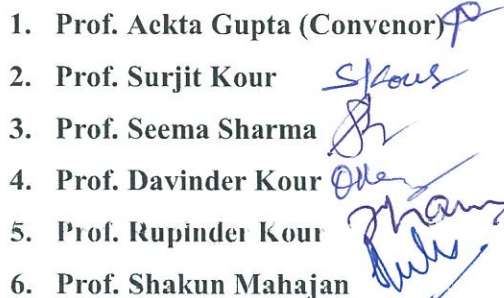 1. Prof. Ackta Gupta (Convenor)
2. Prof. Surjit Kour SKour
3. Prof. Seema Sharma
4. Prof. Davinder Kour
5. Prof. Rupinder Kour
6. Prof. Shakun Mahajan